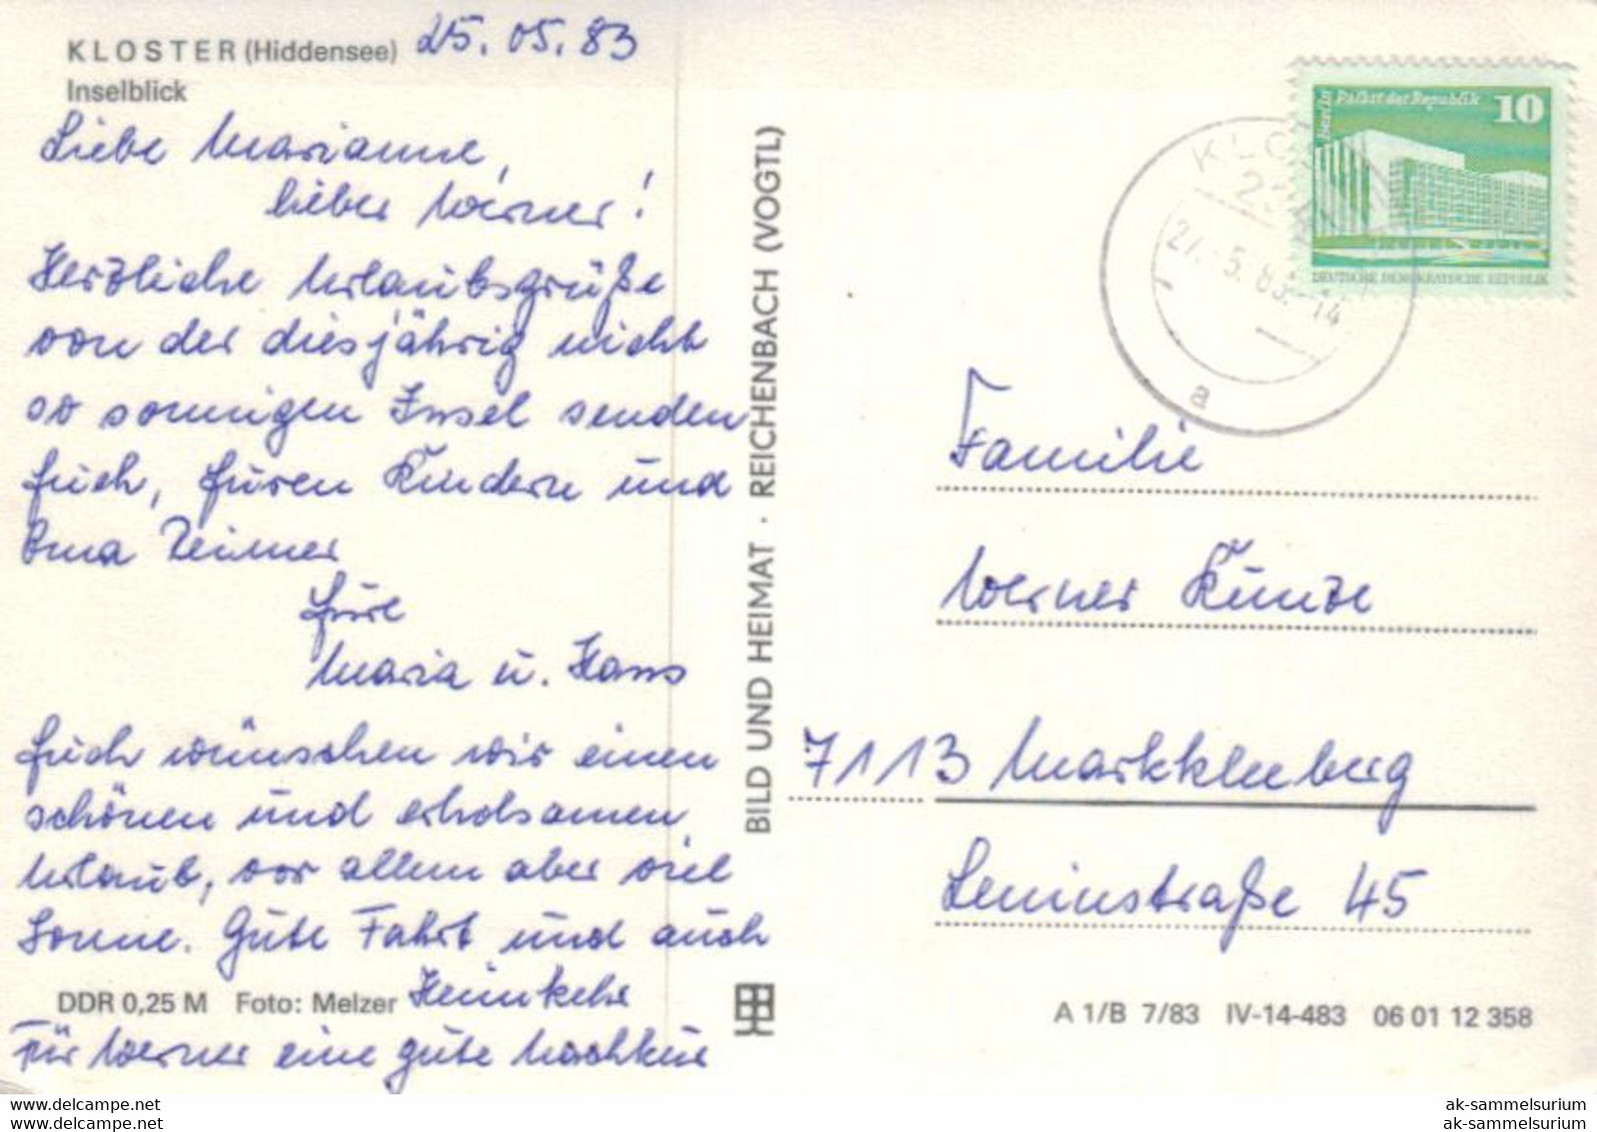 KLOSTER (Hiddensee) 25.05.83
Inselblick
Liebe Marianne,
lieber Werner!
Herzliche Urlaubsgrüße
von der diesjährig nicht
so sonnigen Insel senden
Euch, Euren Kindern und
Oma
Eure
Maria u. Hans
Euch wünschen wir einen
schönen und erholsamen
Urlaub, vor allem aber viel
Sonne. Gute Fahrt und auch
Heimkehr
Für Werner eine gute Nachkur
DDR 0,25 M Foto: Melzer
BILD UND HEIMAT · REICHENBACH (VOGTL)
Berlin Palast der Republik 10
DEUTSCHE DEMOKRATISCHE REPUBLIK
27.-5.83.-14
a
Familie
Werner Kunze
7113 Markkleeberg
Leninstraße 45
A 1/B 7/83 IV-14-483 06 01 12 358
ak-sammelsurium.com
ak-sammelsurium.com
ak-sammelsurium
ak-sammelsurium